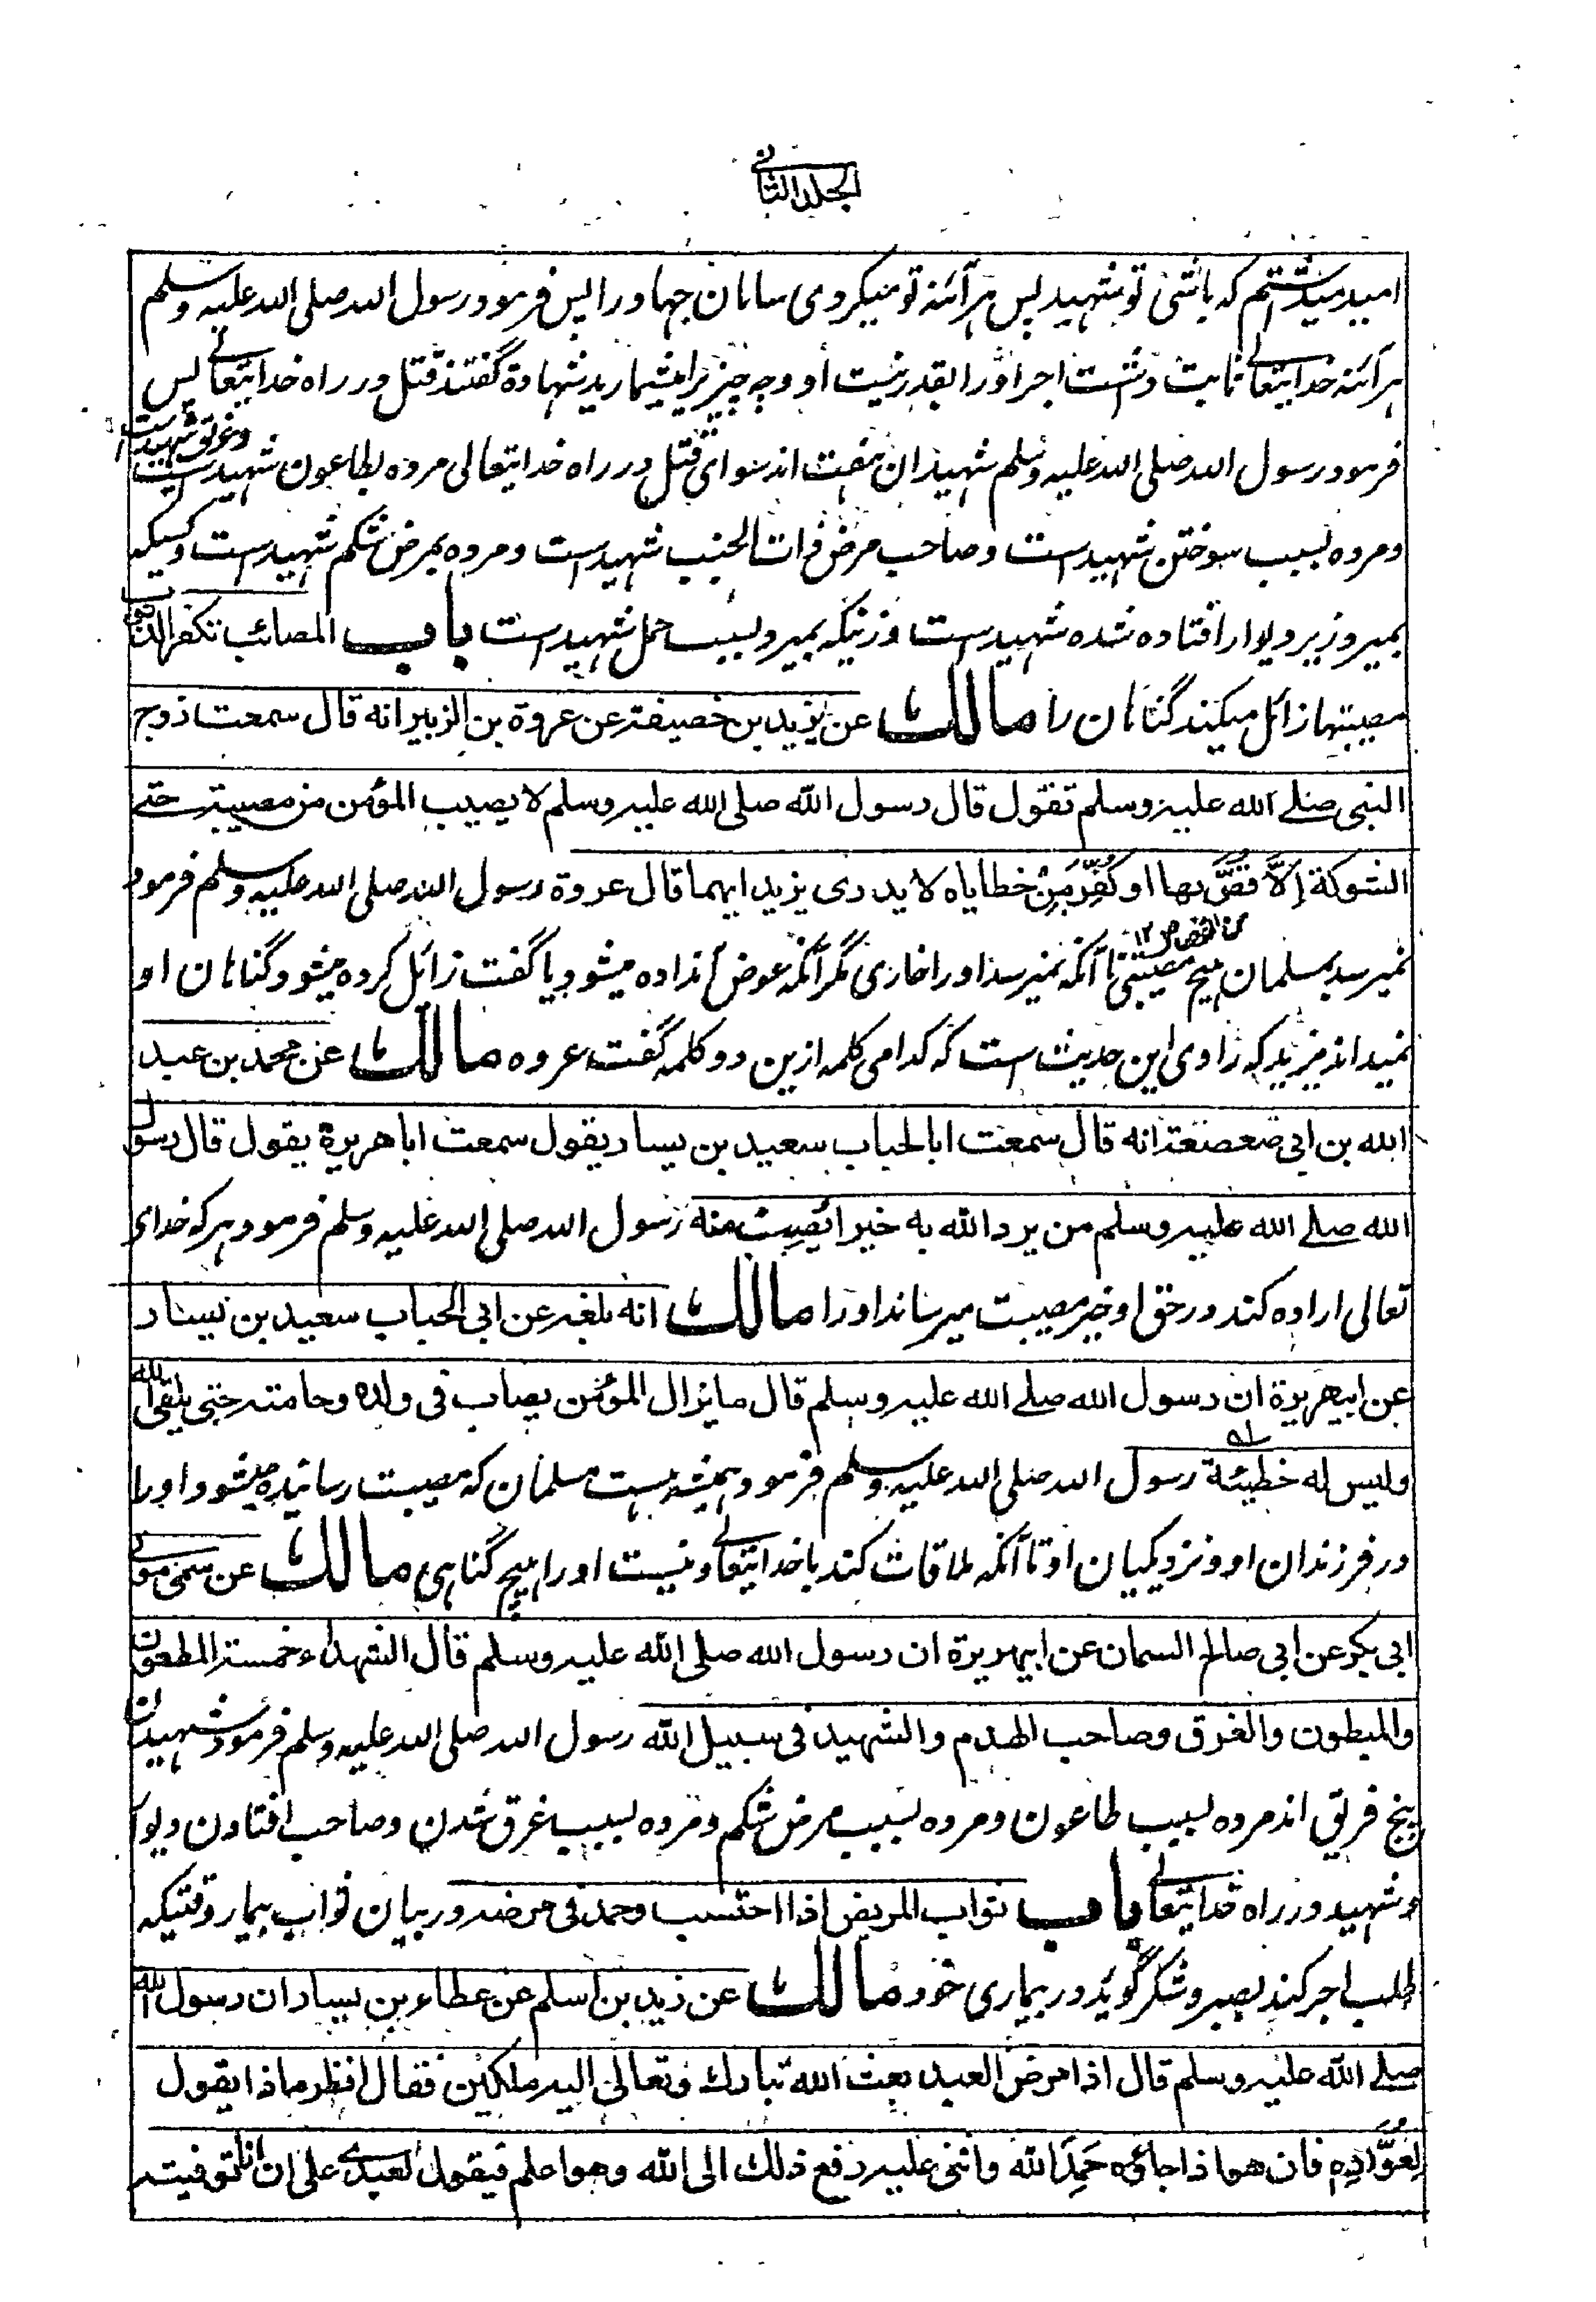 الجلد الثانی
امید میداشتم که باشی تو شهید پس هر آئنه تو میکردی سامان جهاد را پس فرمود رسول الله صلی الله علیه وسلم
هر آئنه خدایتعالے ثابت داشت اجر او را بقدر نیت او و چه چیز را میشمارید شهادة گفتند قتل در راه خدایتعالے پس
فرمود رسول الله صلی الله علیه وسلم شهیدان هفت اند سوای قتل در راه خدایتعالی مرده بطاعون شهید است وغرق شهید است
و مرده بسبب سوختن شهید است و صاحب مرض ذات الجنب شهید است و مرده بمرض شکم شهید است و کسیکه
بمیرد زیر دیوار افتاده شده شهید است و زنیکه بمیرد بسبب حمل شهید است باب المصائب تکفر الذنوب
مصیبتها زائل میکند گناهان را مالك عن یزید بن خصیفة عن عروة بن الزبیر انه قال سمعت زوج
النبی صلے الله علیه وسلم تقول قال رسول الله صلی الله علیه وسلم لا یصیب المؤمن من مصیبة حتے
الشوکة اِلَّا قُصَّ بها او کُفِّرَ مِن خطایاه لا یدری یزید ایهما قال عروة رسول الله صلی الله علیه وسلم فرمود
من القصاص ۱۲
نمیرسد بمسلمان هیچ مصیبتی تا آنکه نمیرسد او را خاری مگر آنکه عوض آنداده میشود یا گفت زائل کرده میشود گناهان او
نمیداند یزید که راوی این حدیث است که کدامی کلمه ازین دو کلمه گفت عروه مالك عن محمد بن عبد
الله بن ابی صعصعة انه قال سمعت ابا الحباب سعید بن یسار یقول سمعت ابا هریرة یقول قال رسول
الله صلے الله علیه وسلم من یرد الله به خیرا یُصِبْ منه رسول الله صلی الله علیه وسلم فرمود هر که خدای
تعالی اراده کند در حق او خیر مصیبت میرساند او را مالك انه بلغه عن ابی الحباب سعید بن یسار
عن ابیهریرة ان رسول الله صلے الله علیه وسلم قال ما یزال المؤمن یصاب فی ولده وحامته حتی یلقی الله
ولیس له خطیئة رسول الله صلی الله علیه وسلم فرمود همیشه هست مسلمان که مصیبت رسانیده میشود او را
در فرزندان او و نزدیکیان او تا آنکه ملاقات کند با خدایتعالے و نیست او را هیچ گناهی مالك عن سمی مولی
ابی بکر عن ابی صالح السمان عن ابیهریرة ان رسول الله صلی الله علیه وسلم قال الشهداء خمسة المطعون
والمبطون والغرق وصاحب الهدم والشهید فی سبیل الله رسول الله صلی الله علیه وسلم فرمود شهیدان
پنج فریق اند مرده بسبب طاعون و مرده بسبب مرض شکم و مرده بسبب غرق شدن و صاحب افتادن دیوار
و شهید در راه خدایتعالے باب ثواب المریض اذا احتسب وحمد فی مرضه در بیان ثواب بیمار وقتیکه
طلب اجر کند بصبر و شکر گوید در بیماری خود مالك عن زید بن اسلم عن عطاء بن یسار ان رسول الله
صلے الله علیه وسلم قال اذا مرض العبد بعث الله تبارك وتعالی الیه ملکین فقال انظر ماذا یقول
لِعُوَّادِه فان هو اذا جاؤه حَمِدَ الله واثنی علیه رفع ذلك الی الله وهو اعلم فیقول لعبدی علی ان انا توفیته